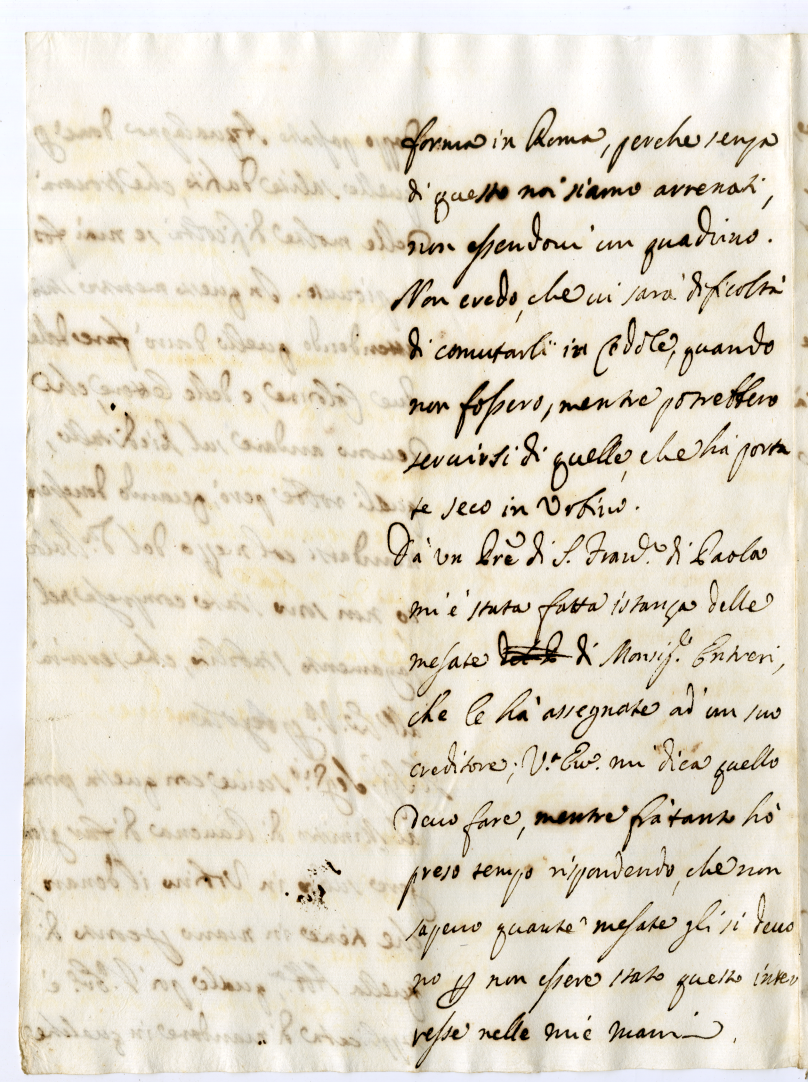 forma in Roma, perche senza
di questo noi siamo arrenati,
non essendoui un quadrino.
Non credo, che ui sarà dificoltà
di comutarli in Cedole, quando
non fossero, mentre potrebbero
seruirsi di quelle, che hà porta
te seco in Vrbino.
Dà vn Prẽ di S. Franc.º di Paola
mi è stata fatta istanza delle
mesate di Monsig.r
che le hà assegnate ad un suo
creditore; V.ª Em. mi dica quello
deuo fare, mentre frà tanto hò
preso tempo rispondendo, che non
sapeuo quante mesate gli si deuo
no ꝑ non essere stato questo inte
resse nelle mie mani.